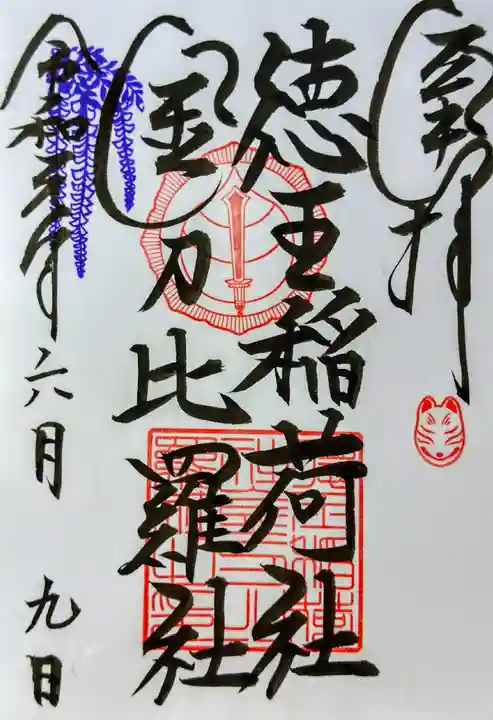 奉拝
徳王稲荷社
金刀比羅社
令和元年
六月
九日